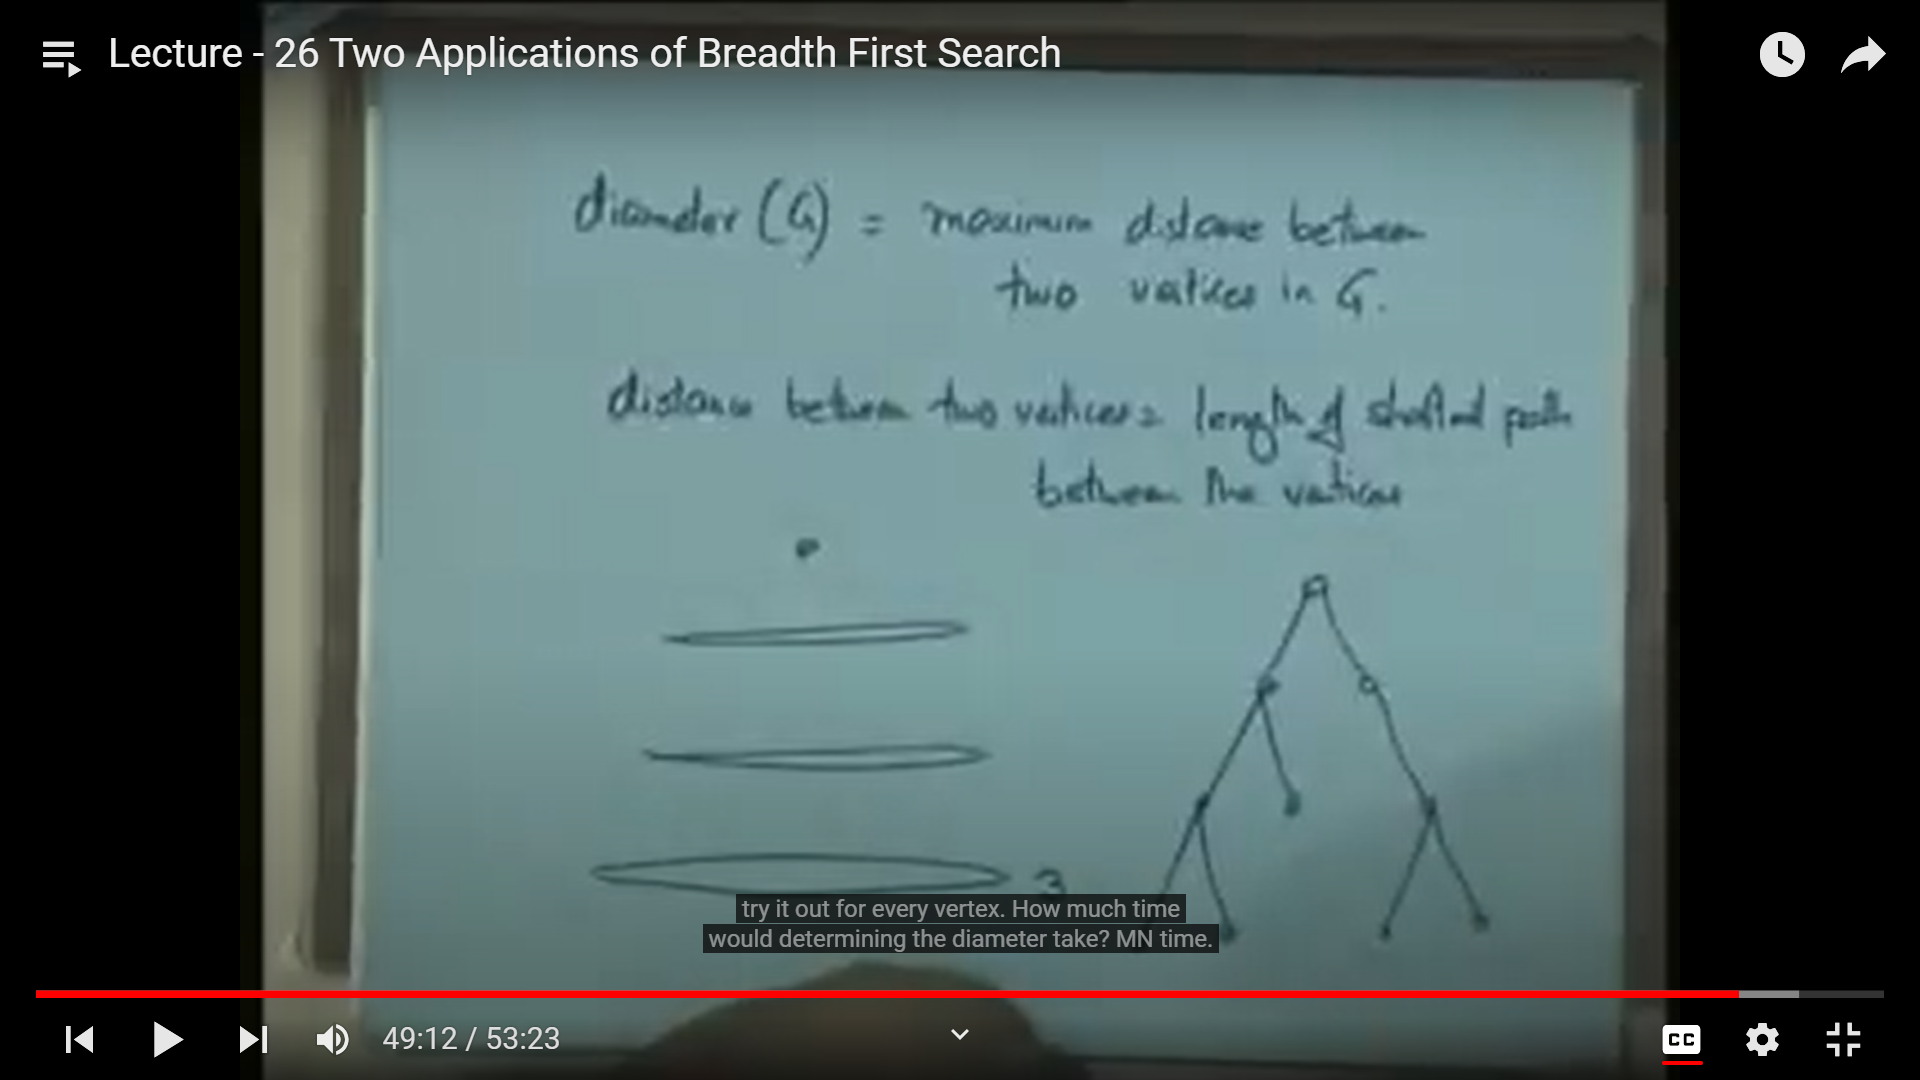 Lecture - 26 Two Applications of Breadth First Search
diameter (G) = maximum distance between
two vertices in G.
distance between two vertices = length of shortest path
between the vertices
3
try it out for every vertex. How much time
would determining the diameter take? MN time.
49:12 / 53:23
CC